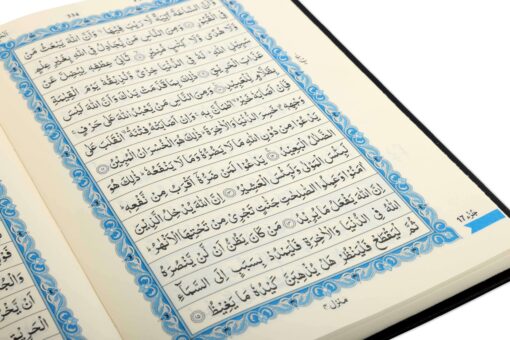 اَنَّ السَّاعَةَ اٰتِيَةٌ لَّا رَيْبَ فِيْهَا ۙ وَاَنَّ اللّٰهَ يَبْعَثُ مَنْ
فِي الْقُبُوْرِ ۝ وَمِنَ النَّاسِ مَنْ يُّجَادِلُ فِي اللّٰهِ بِغَيْرِ عِلْمٍ
وَّلَا هُدًى وَّلَا كِتٰبٍ مُّنِيْرٍ ۝ ثَانِيَ عِطْفِهٖ لِيُضِلَّ عَنْ
سَبِيْلِ اللّٰهِ ؕ لَهٗ فِي الدُّنْيَا خِزْيٌ وَّنُذِيْقُهٗ يَوْمَ الْقِيٰمَةِ
عَذَابَ الْحَرِيْقِ ۝ ذٰلِكَ بِمَا قَدَّمَتْ يَدٰكَ وَاَنَّ اللّٰهَ لَيْسَ
بِظَلَّامٍ لِّلْعَبِيْدِ ۝ وَمِنَ النَّاسِ مَنْ يَّعْبُدُ اللّٰهَ عَلٰى حَرْفٍ ۚ
فَاِنْ اَصَابَهٗ خَيْرُ ۨاطْمَاَنَّ بِهٖ ۚ وَاِنْ اَصَابَتْهُ فِتْنَةُ ۨانْقَلَبَ عَلٰى
وَجْهِهٖ ۚ خَسِرَ الدُّنْيَا وَالْاٰخِرَةَ ؕ ذٰلِكَ هُوَ الْخُسْرَانُ الْمُبِيْنُ ۝
يَدْعُوْا مِنْ دُوْنِ اللّٰهِ مَا لَا يَضُرُّهٗ وَمَا لَا يَنْفَعُهٗ ؕ ذٰلِكَ هُوَ
الضَّلٰلُ الْبَعِيْدُ ۝ يَدْعُوْا لَمَنْ ضَرُّهٗۤ اَقْرَبُ مِنْ نَّفْعِهٖ ؕ
لَبِئْسَ الْمَوْلٰى وَلَبِئْسَ الْعَشِيْرُ ۝ اِنَّ اللّٰهَ يُدْخِلُ الَّذِيْنَ
اٰمَنُوْا وَعَمِلُوا الصّٰلِحٰتِ جَنّٰتٍ تَجْرِيْ مِنْ تَحْتِهَا الْاَنْهٰرُ ؕ
اِنَّ اللّٰهَ يَفْعَلُ مَا يُرِيْدُ ۝ مَنْ كَانَ يَظُنُّ اَنْ لَّنْ يَّنْصُرَهُ
اللّٰهُ فِي الدُّنْيَا وَالْاٰخِرَةِ فَلْيَمْدُدْ بِسَبَبٍ اِلَى السَّمَآءِ
ثُمَّ لْيَقْطَعْ فَلْيَنْظُرْ هَلْ يُذْهِبَنَّ كَيْدُهٗ مَا يَغِيْظُ ۝۱۵
منزل ۴
جُزْء ١٧